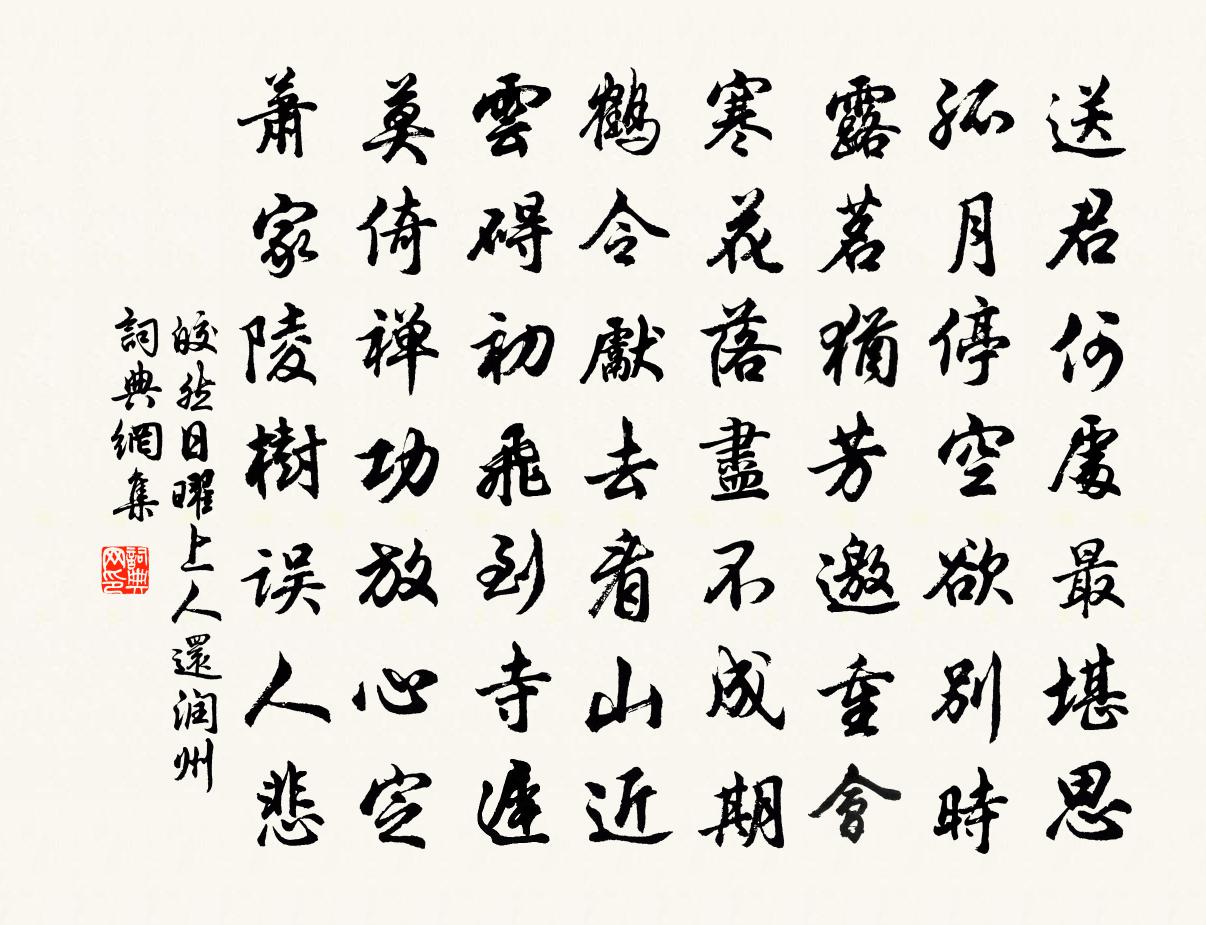 送君何處最堪思
孤月停空欲別時
露茗猶芳邀重會
寒花落盡不成期
鶴令獻去看山近
雲碍初飛到寺遲
莫倚禅功放心定
蕭家陵樹误人悲
皎然日曜上人還润州
詞典網集
詞典网印